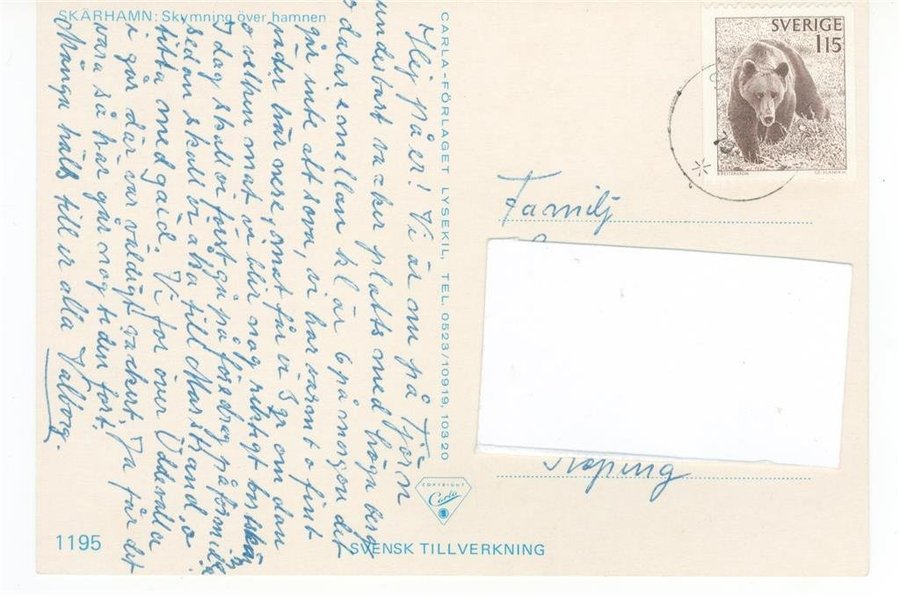 SKÄRHAMN: Skymning över hamnen
Hej på er! Vi är nu på Tjörn
underbart vacker plats med höga berg
o dalar emellan kl är 6 på morgon det
går inte att sova, vi har varmt o fint
väder här nere, mat får vi 3 gr om dan
o vilken mat vi blir nog riktigt
I dag skall vi först gå på föredrag på förmid.
sedan skall vi åka till Marstrand, o
titta med guid. Vi for över Uddevalla
i går där var väldigt vackert. Ja får det
vara så här går nog tiden fort.
Många häls till er alla Valborg.
CARLA-FÖRLAGET LYSEKIL, TEL. 0523/10919, 10320
SVERIGE
115
Familj
Köping
COPYRIGHT
Carla
1195
SVENSK TILLVERKNING